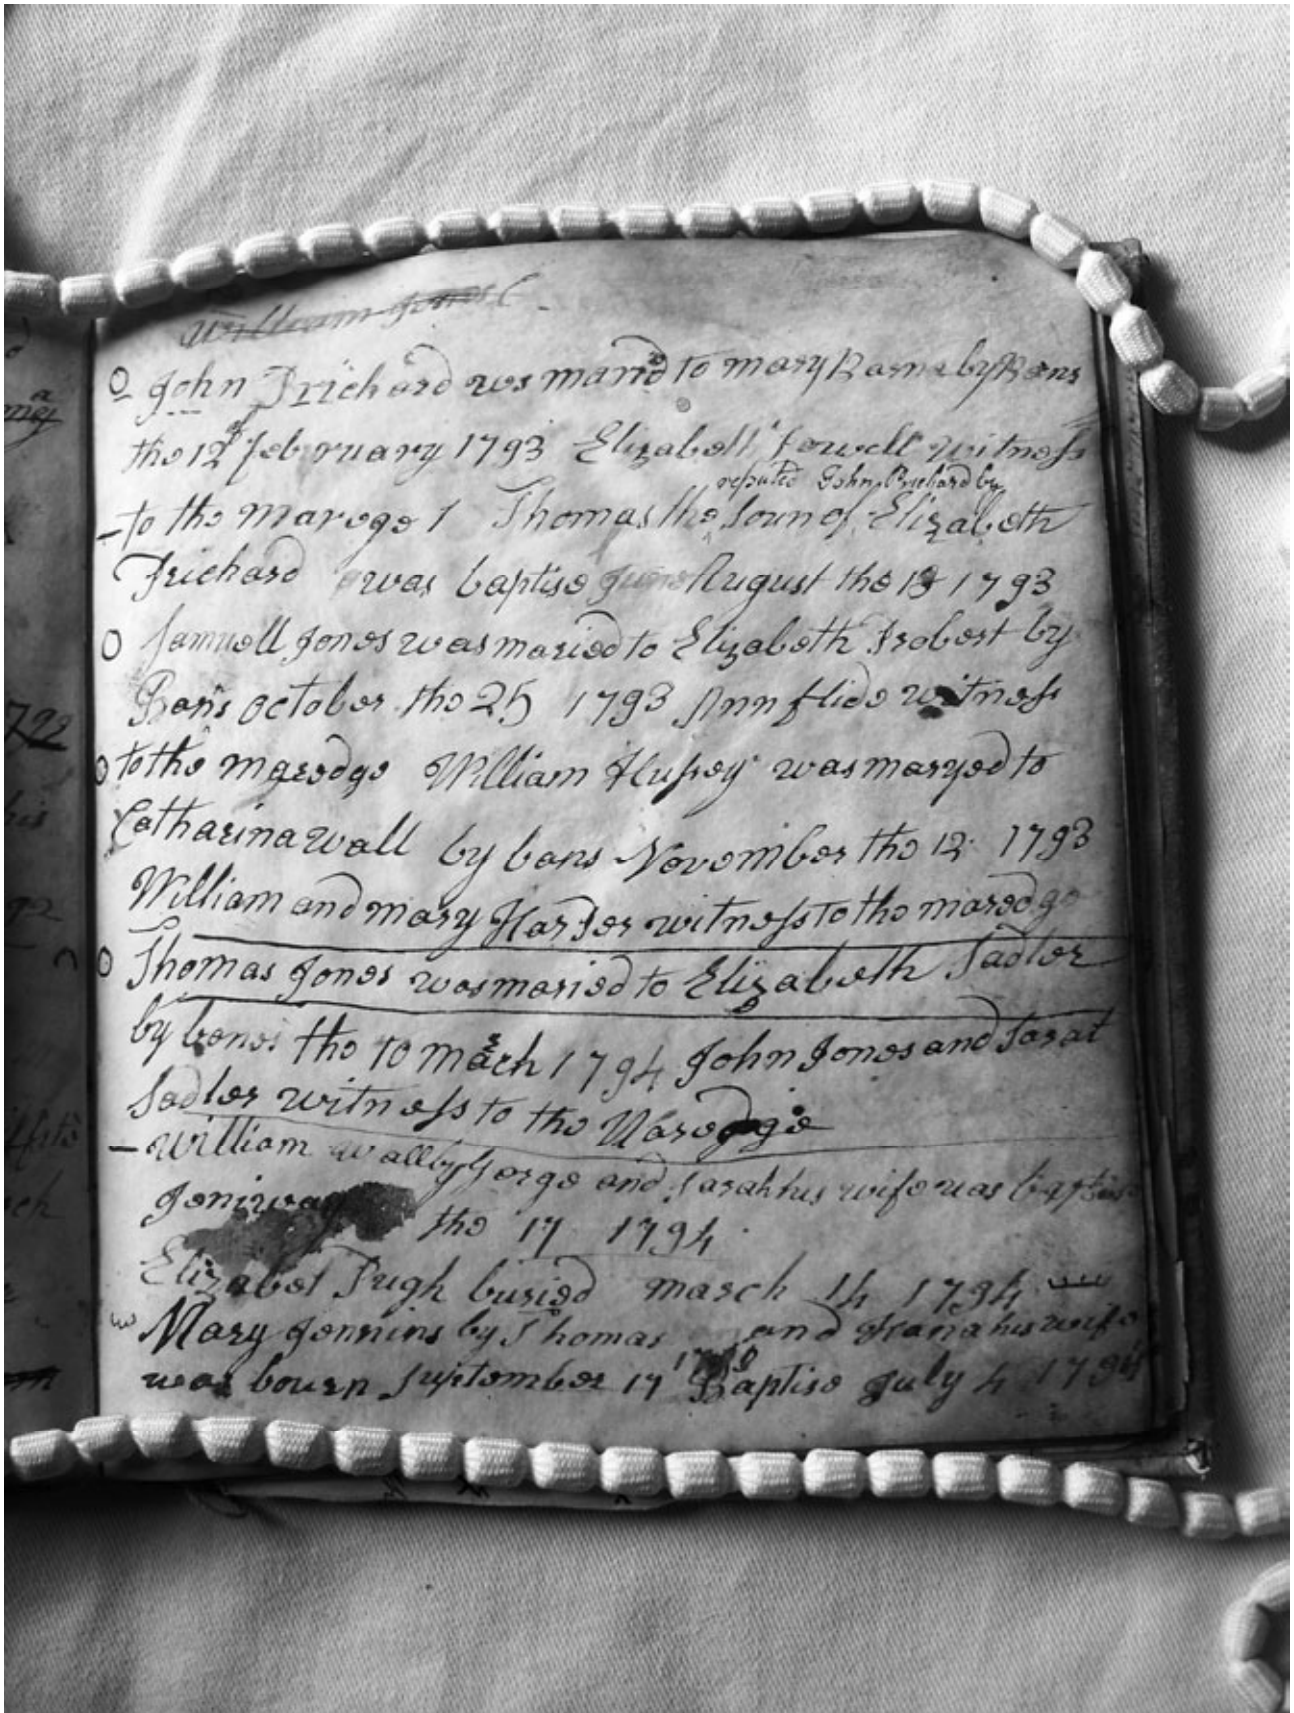 William Jones
John Prichard was marid to mary Barne by Bans
the 12 of February 1793 Elizabell Powell witness
reputed John Prichard by
to the marege 1 Thomas the soun of Elizabeth
Prichard was baptise June August the 13 1793
Samuell Jones was maried to Elizabeth Probert by
Bans October the 25 1793 Ann witness
to the maredge William Hussey was maryed to
Catharina wall by bans November the 12 1793
William and mary Harper witness to the maredge
Thomas Jones was maried to Elizabeth Sadler
by bans the 10 March 1794 John Jones and Sarat
Sadler witness to the Maredge
William wall by Gorge and Sarah his wife was baptise
Jenirway the 17 1794
Elizabet Pugh buried march 14 1794
Mary Jennins by Thomas and Hana his wife
was bourn September 17 Baptise July 4 1794